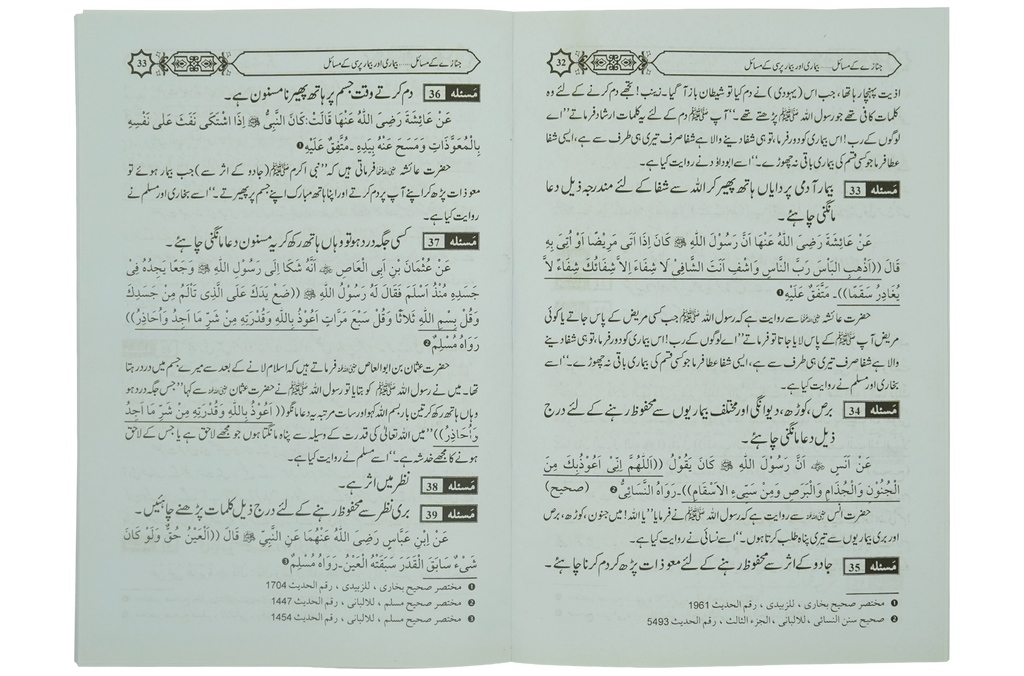 32
جنازے کے مسائل ..... بیماری اور بیمار پرسی کے مسائل
اذیت پہنچا رہا تھا، جب اس (یہودی) نے دم کیا تو شیطان باز آ گیا۔ زینب! تجھے دم کرنے کے لئے وہ
کلمات کافی تھے جو رسول اللہ ﷺ پڑھتے تھے۔“ آپ ﷺ دم کے لئے یہ کلمات ارشاد فرماتے ”اے
لوگوں کے رب! اس بیماری کو دور فرما، تو ہی شفا دینے والا ہے شفا صرف تیری ہی طرف سے ہے، ایسی شفا
عطا فرما جو کسی قسم کی بیماری باقی نہ چھوڑے۔“ اسے ابوداؤد نے روایت کیا ہے۔
مسئله 33 بیمار آدمی پر دایاں ہاتھ پھیر کر اللہ سے شفا کے لئے مندرجہ ذیل دعا
مانگنی چاہئے۔
عَنْ عَائِشَةَ رَضِيَ اللَّهُ عَنْهَا أَنَّ رَسُولَ اللَّهِ ﷺ كَانَ إِذَا أَتَى مَرِيضًا أَوْ أُتِيَ بِهِ
قَالَ ((أَذْهِبِ الْبَأْسَ رَبَّ النَّاسِ وَاشْفِ أَنْتَ الشَّافِيْ لاَ شِفَاءَ إِلاَّ شِفَائُكَ شِفَاءً لاَّ
يُغَادِرُ سَقَمًا))۔ مُتَّفَقٌ عَلَيْهِ ❶
حضرت عائشہ رضی اللہ عنہا سے روایت ہے کہ رسول اللہ ﷺ جب کسی مریض کے پاس جاتے یا کوئی
مریض آپ ﷺ کے پاس لایا جاتا تو فرماتے ”اے لوگوں کے رب! اس بیماری کو دور فرما، تو ہی شفا دینے
والا ہے شفا صرف تیری ہی طرف سے ہے، ایسی شفا عطا فرما جو کسی قسم کی بیماری باقی نہ چھوڑے۔“ اسے
بخاری اور مسلم نے روایت کیا ہے۔
مسئله 34 برص، کوڑھ، دیوانگی اور مختلف بیماریوں سے محفوظ رہنے کے لئے درج
ذیل دعا مانگنی چاہئے۔
عَنْ أَنَسٍ ﷺ أَنَّ رَسُولَ اللَّهِ ﷺ كَانَ يَقُولُ ((اَللّٰهُمَّ إِنِّيْ أَعُوذُبِكَ مِنَ
الْجُنُونِ وَالْجُذَامِ وَالْبَرَصِ وَمِنْ سَيِّيءِ الْأَسْقَامِ))۔ رَوَاهُ النَّسَائِيُّ ❷ (صحیح)
حضرت انس رضی اللہ عنہ سے روایت ہے کہ رسول اللہ ﷺ نے فرمایا ”یا اللہ! میں جنون، کوڑھ، برص
اور بری بیماریوں سے تیری پناہ طلب کرتا ہوں۔“ اسے نسائی نے روایت کیا ہے۔
مسئله 35 جادو کے اثر سے محفوظ رہنے کے لئے معوذات پڑھ کر دم کرنا چاہئے۔
❶ مختصر صحیح بخاری ، للزبیدی ، رقم الحدیث 1961
❷ صحیح سنن النسائی ، للالبانی ، الجزء الثالث ، رقم الحدیث 5493
33
جنازے کے مسائل ..... بیماری اور بیمار پرسی کے مسائل
مسئله 36 دم کرتے وقت جسم پر ہاتھ پھیرنا مسنون ہے۔
عَنْ عَائِشَةَ رَضِيَ اللَّهُ عَنْهَا قَالَتْ: كَانَ النَّبِيُّ ﷺ إِذَا اشْتَكَى نَفَثَ عَلَى نَفْسِهِ
بِالْمُعَوِّذَاتِ وَمَسَحَ عَنْهُ بِيَدِهِ ۔ مُتَّفَقٌ عَلَيْهِ ❶
حضرت عائشہ رضی اللہ عنہا فرماتی ہیں کہ ”نبی اکرم ﷺ (جادو کے اثر سے) جب بیمار ہوئے تو
معوذات پڑھ کر اپنے آپ پر دم کرتے اور اپنا ہاتھ مبارک اپنے جسم پر پھیرتے۔“ اسے بخاری اور مسلم نے
روایت کیا ہے۔
مسئله 37 کسی جگہ درد ہو تو وہاں ہاتھ رکھ کر یہ مسنون دعا مانگنی چاہئے۔
عَنْ عُثْمَانَ بْنِ أَبِي الْعَاصِ أَنَّهُ شَكَا إِلَى رَسُولِ اللَّهِ ﷺ وَجَعًا يَجِدُهُ فِيْ
جَسَدِهِ مُنْذُ أَسْلَمَ فَقَالَ لَهُ رَسُولُ اللَّهِ ﷺ ((ضَعْ يَدَكَ عَلَى الَّذِي تَأَلَّمَ مِنْ جَسَدِكَ
وَقُلْ بِسْمِ اللَّهِ ثَلاَثًا وَقُلْ سَبْعَ مَرَّاتٍ أَعُوْذُ بِاللَّهِ وَقُدْرَتِهِ مِنْ شَرِّ مَا أَجِدُ وَأُحَاذِرُ))
رَوَاهُ مُسْلِمٌ ❷
حضرت عثمان بن ابو العاص رضی اللہ عنہ فرماتے ہیں کہ اسلام لانے کے بعد سے میرے جسم میں درد رہتا
تھا۔ میں نے رسول اللہ ﷺ کو بتایا تو رسول اللہ ﷺ نے حضرت عثمان رضی اللہ عنہ سے کہا ”جس جگہ درد ہو
وہاں ہاتھ رکھ کر تین بار بسم اللہ کہو اور سات مرتبہ یہ دعا مانگو ((أَعُوْذُ بِاللَّهِ وَقُدْرَتِهِ مِنْ شَرِّ مَا أَجِدُ
وَأُحَاذِرُ)) ”میں اللہ تعالیٰ کی قدرت کے وسیلہ سے پناہ مانگتا ہوں جو مجھے لاحق ہے یا جس کے لاحق
ہونے کا مجھے خدشہ ہے۔“ اسے مسلم نے روایت کیا ہے۔
مسئله 38 نظر میں اثر ہے۔
مسئله 39 بری نظر سے محفوظ رہنے کے لئے درج ذیل کلمات پڑھنے چاہئیں۔
عَنْ اِبْنِ عَبَّاسٍ رَضِيَ اللَّهُ عَنْهُمَا عَنِ النَّبِيِّ ﷺ قَالَ ((اَلْعَيْنُ حَقٌّ وَلَوْ كَانَ
شَيْءٌ سَابَقَ الْقَدَرَ سَبَقَتْهُ الْعَيْنُ۔ رَوَاهُ مُسْلِمٌ ❸
❶ مختصر صحیح بخاری ، للزبیدی ، رقم الحدیث 1704
❷ مختصر صحیح مسلم ، للالبانی ، رقم الحدیث 1447
❸ مختصر صحیح مسلم ، للالبانی ، رقم الحدیث 1454